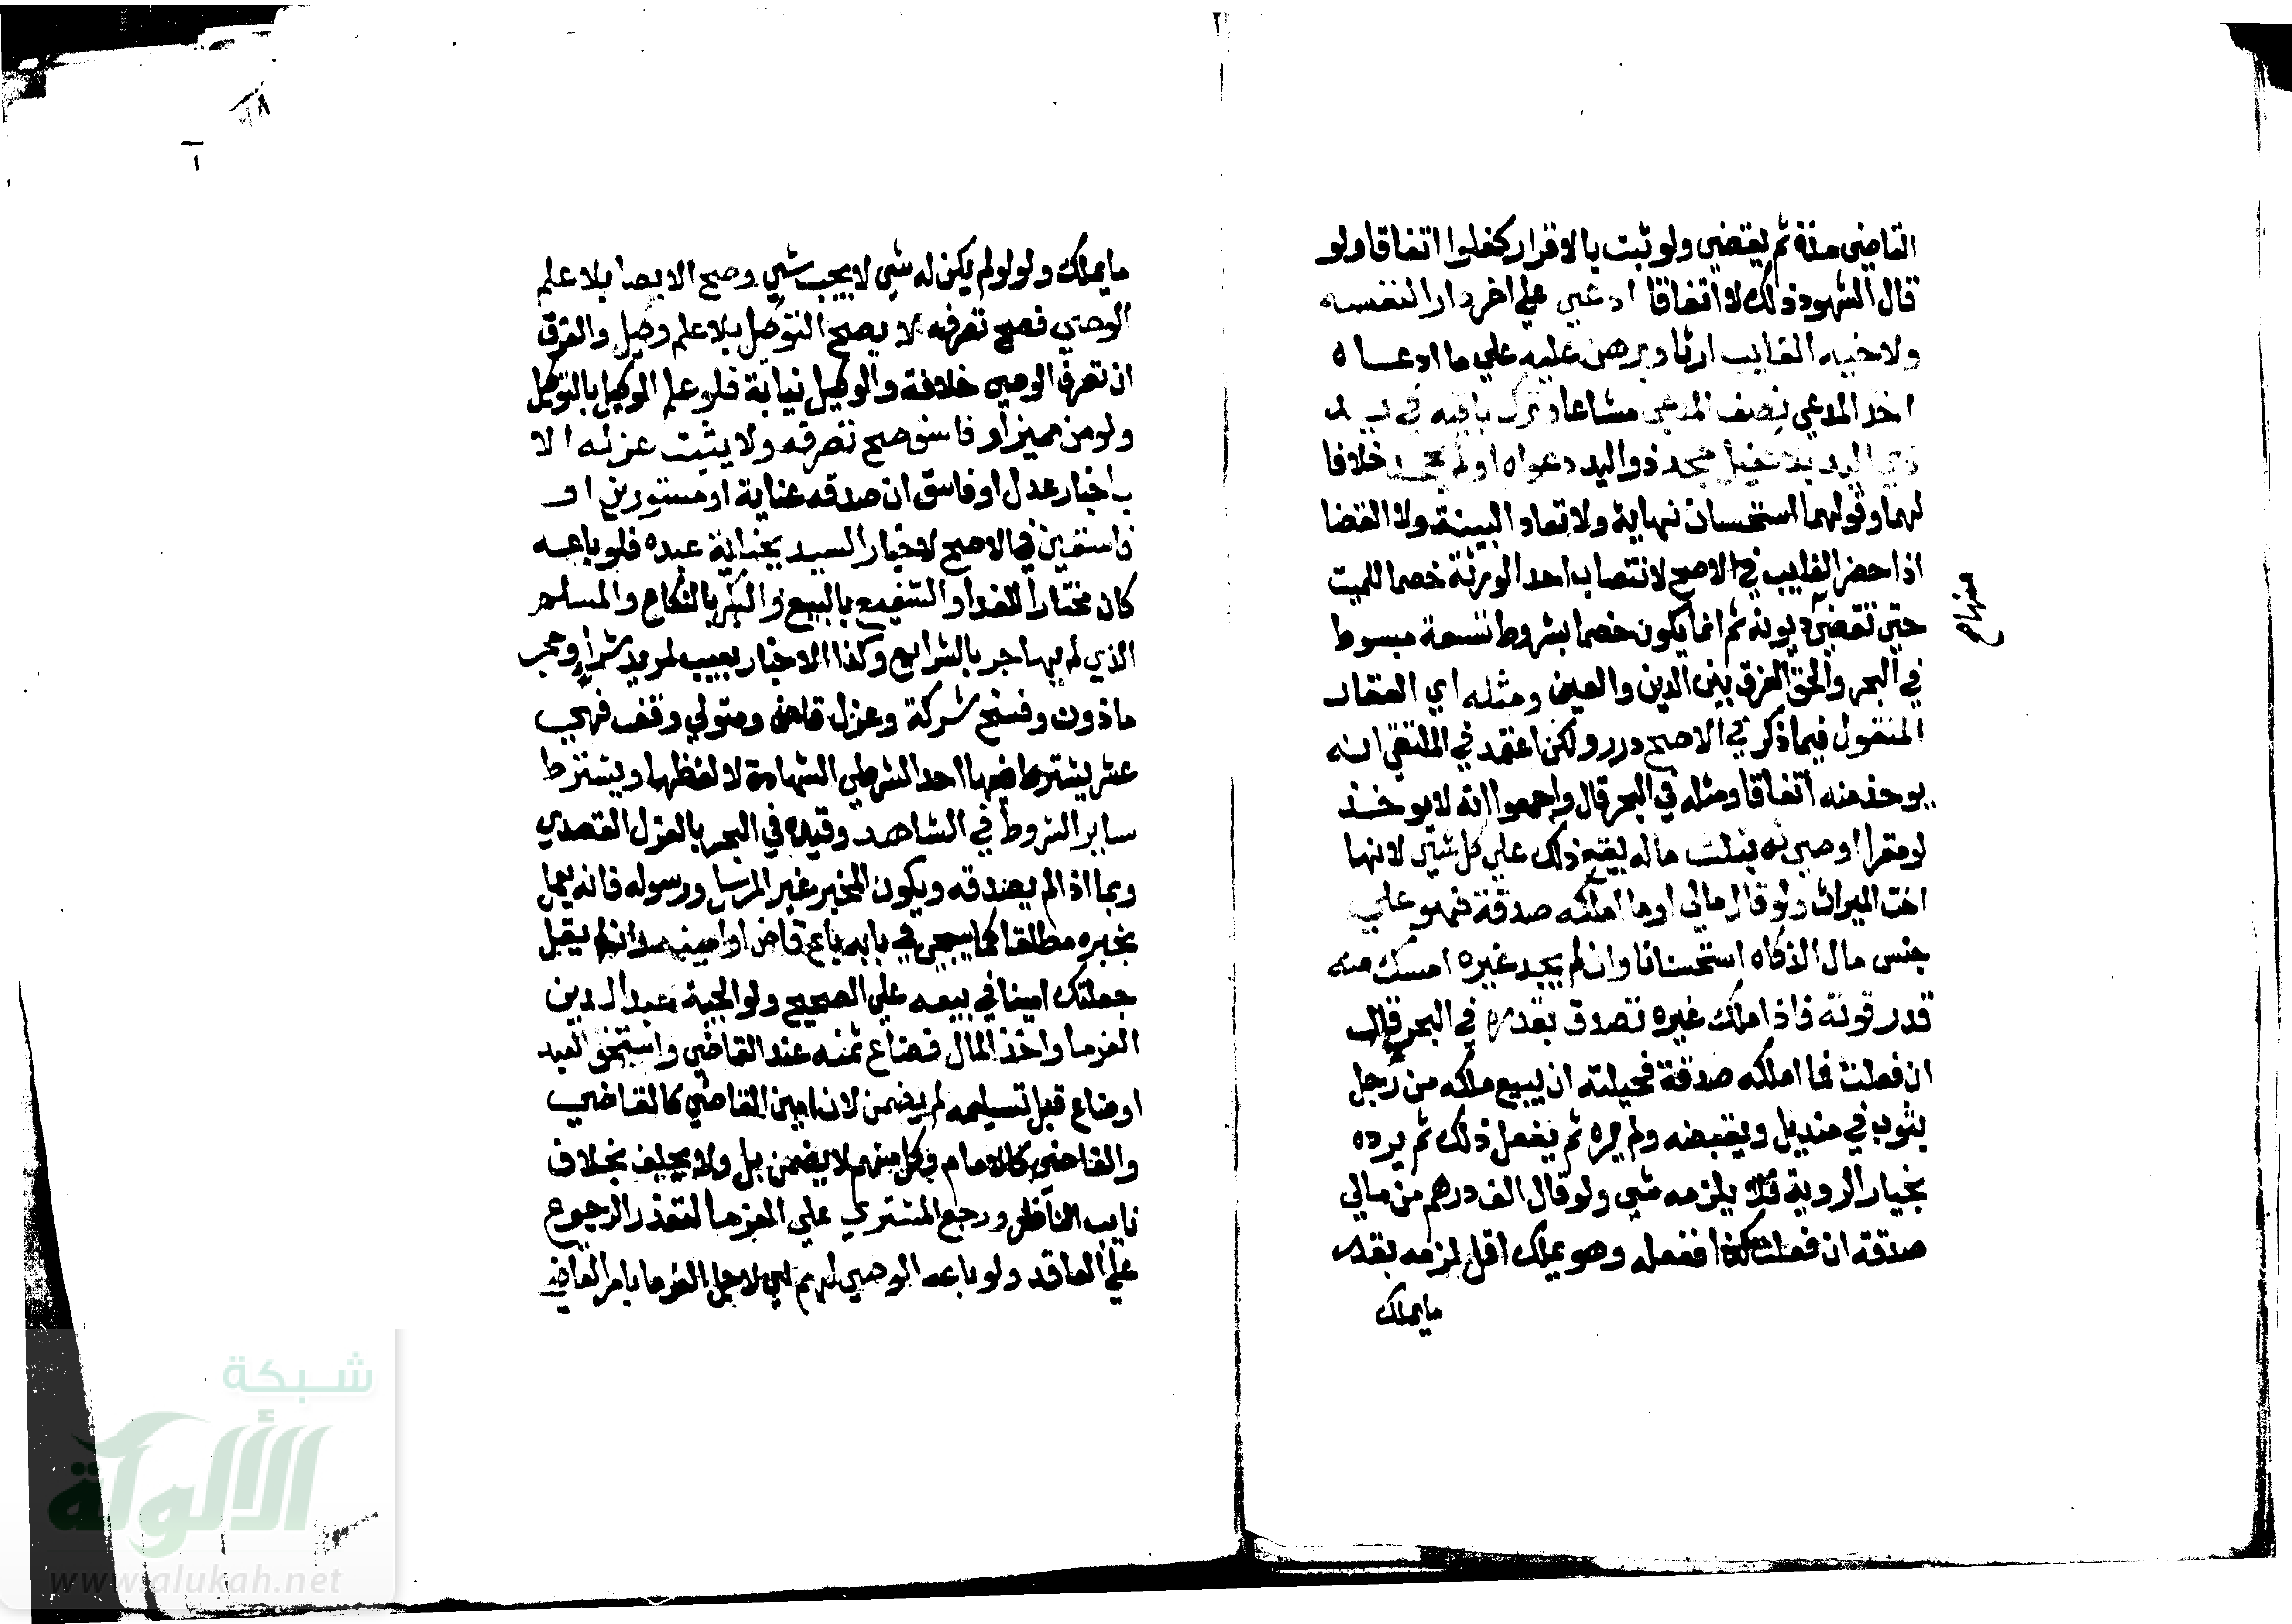 القاضي مدة ثم يقضي ولو ثبت بالاقرار كفلوا اتفاقا ولو
قال الشهود ذلك لا اتفاقا ادعي علي اخر دارا لنفسه
ولاخيه الغايب ارثا وبرهن عليه علي ما ادعاه
اخذ المدعي نصف المدعي مشاعا وترك باقيه في يد
ذي اليد بلا كفيل جحد ذو اليد دعواه او لم يجحد خلافا
لهما وقولهما استحسان نهاية ولا تعاد البينة ولا القضا
اذا حضر الغايب في الاصح لانتصاب احد الورثة خصما للميت
حتي تقضي ديونه ثم انما يكون خصما بشروط تسعة مبسوط
في البحر والحق الفرق بين الدين والعين ومثله اي العقار
المنقول فيما ذكر في الاصح درر ولكن اعتمد في الملتقي انه
يوخذ منه اتفاقا ومثله في البحر قال واجمعوا انه لا يوخذ
لو مقرا اوصي له بثلث ماله يقع ذلك علي كل شي لانها
اخت الميراث ولو قال مالي او ما املكه صدقة فهو علي
جنس مال الزكاه استحسانا وان لم يجد غيره امسك منه
قدر قوته فاذا ملك غيره تصدق بقدره في البحر قال
ان فعلت فما املكه صدقة فحيلته ان يبيع ملكه من رجل
بثوب في منديل ويقبضه ولم يره ثم يفعل ذلك ثم يرده
بخيار الروية فلا يلزمه شي ولو قال الف درهم من مالي
صدقة ان فعلت كذا ففعله وهو يملك اقل لزمه بقدر
مايملك
منهاج
مايملك ولو لو لم يكن له شي لا يجب شي وصح الايصا بلا علم
الوصي فصح تصرفه لا يصح التوكيل بلا علم وكيل والفرق
ان تصرف الوصي خلافة والوكيل نيابة فلو علم الوكيل بالتوكيل
ولو من مميز او فاسق صح تصرفه ولا يثبت عزله الا
باخبار عدل او فاسق ان صدقه عناية او مستورين او
فاسقين في الاصح لاخبار السيد بجناية عبده فلو باعه
كان مختارا للفدا والشفيع بالبيع والبكر بالنكاح والمسلم
الذي لم يهاجر بالشرايع وكذا الاخبار بعيب لمريد شرا وحجر
ماذون وفسخ شركة وعزل قاض ومتولي وقف فهي
عشر يشترط فيها احد الشرطي الشهادة لا لفظها ويشترط
ساير الشروط في الشاهد وقيده في البحر بالعزل القصدي
وبما اذا لم يصدقه ويكون المخبر غير المرسل ورسوله فانه يعمل
بخبره مطلقا كما سيجي في بابه باع قاض او امينه وان لم يقل
جعلتك امينا في بيعه علي الصحيح ولوالجية عبدا لدين
الغرما واخذ المال فضاع ثمنه عند القاضي واستحق العبد
او ضاع قبل تسليمه لم يضمن لان امين القاضي كالقاضي
والقاضي كالامام وكل منهم لا يضمن بل ولا يحلف بخلاف
نايب الناظر ورجع المشتري علي الغرما لتعذر الرجوع
علي العاقد ولو باعه الوصي لهم لاجل الغرما بامر القاضي
شبكة
الألوكة
www.alukah.net